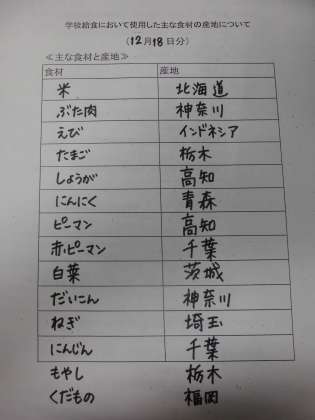 学校給食において使用した主な食材の産地について
(12月18日分)
≪主な食材と産地≫
食材 産地
米 北海道
ぶた肉 神奈川
えび インドネシア
たまご 栃木
しょうが 高知
にんにく 青森
ピーマン 高知
赤ピーマン 千葉
白菜 茨城
だいこん 神奈川
ねぎ 埼玉
にんじん 千葉
もやし 栃木
くだもの 福岡